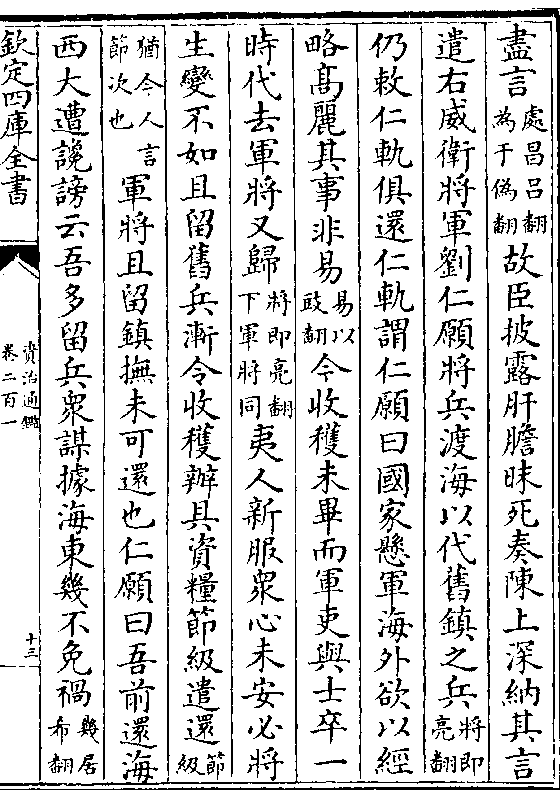 盡言處昌呂翻為于偽翻故臣披露肝膽昧死奏陳上深納其言
遣右威衛將軍劉仁願將兵渡海以代舊鎮之兵將即亮翻
仍敕仁軌俱還仁軌謂仁願曰國家懸軍海外欲以經
略高麗其事非易易以豉翻今收穫未畢而軍吏與士卒一
時代去軍將又歸將即亮翻下軍將同夷人新服衆心未安必將
生變不如且留舊兵漸令收穫辦具資糧節級遣還節級
猶今人言節次也軍將且留鎮撫未可還也仁願曰吾前還海
西大遭讒謗云吾多留兵衆謀據海東幾不免禍幾居希翻
欽定四庫全書
資治通鑑
卷二百一
十三